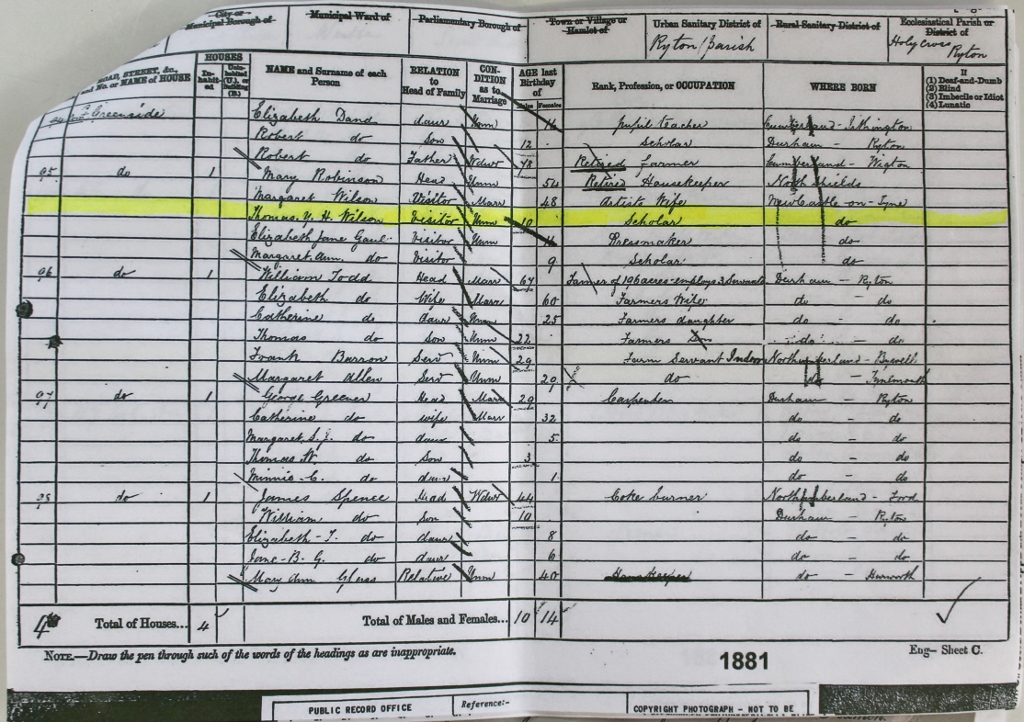 City or Municipal Borough of
Municipal Ward of
Parliamentary Borough of
Town or Village or Hamlet of
Urban Sanitary District of
Ryton Parish
Rural Sanitary District of
Ecclesiastical Parish or District of
Holy Cross Ryton
ROAD, STREET, &c., and No. or NAME of HOUSE
HOUSES
In-habit-ed
Unin-habited (U.), or Building (B.)
NAME and Surname of each Person
RELATION to Head of Family
CON-DITION as to Marriage
AGE last Birthday of
Males Females
Rank, Profession, or OCCUPATION
WHERE BORN
If
(1) Deaf-and-Dumb
(2) Blind
(3) Imbecile or Idiot
(4) Lunatic
Greenside Elizabeth Dand daur Unm 14 pupil teacher Cumberland - Irthington
Robert do Son 12 Scholar Durham - Ryton
Robert do Father Wdwr 78 Retired farmer Cumberland - Wigton
95 do 1 Mary Robinson Head Unm 54 Retired Housekeeper North Shields
Margaret Wilson Visitor Mar 48 Artists Wife Newcastle-on-Tyne
Thomas Y. H. Wilson Visitor Unm 10 Scholar do
Elizabeth Jane Visitor Unm Dressmaker do
Margaret Ann do Visitor 9 Scholar do
96 do 1 William Todd Head Marr 67 Farmer of 196 acres employs 3 Servants Durham - Ryton
Elizabeth do Wife Marr 60 Farmers Wife do - do
Catherine do daur Unm 25 Farmers daughter do - do
Thomas do Son Unm 22 Farmers Son do - do
Frank Barron Serv Unm 29 Farm Servant Indoor Northumberland - Bywell
Margaret Allen Serv Unm 29 do do - Tynemouth
97 do 1 George Greener Head Marr 29 Carpenter Durham - Ryton
Catherine do wife Marr 32 do - do
Margaret S. J. do daur 5 do - do
Thomas W. do Son 3 do - do
Minnie C. do daur 1 do - do
98 do 1 James Spence Head Wdwr 44 Coke burner Northumberland - Ford
William do Son 10 Durham - Ryton
Elizabeth T. do daur 8 do - do
Jane B. G. do daur 6 do - do
Mary Ann Glass Relative Unm 40 Housekeeper do - Hurworth
4 Total of Houses... 4 Total of Males and Females... 10 14
NOTE.—Draw the pen through such of the words of the headings as are inappropriate.
Eng- Sheet C.
1881
PUBLIC RECORD OFFICE
Reference:-
COPYRIGHT PHOTOGRAPH - NOT TO BE